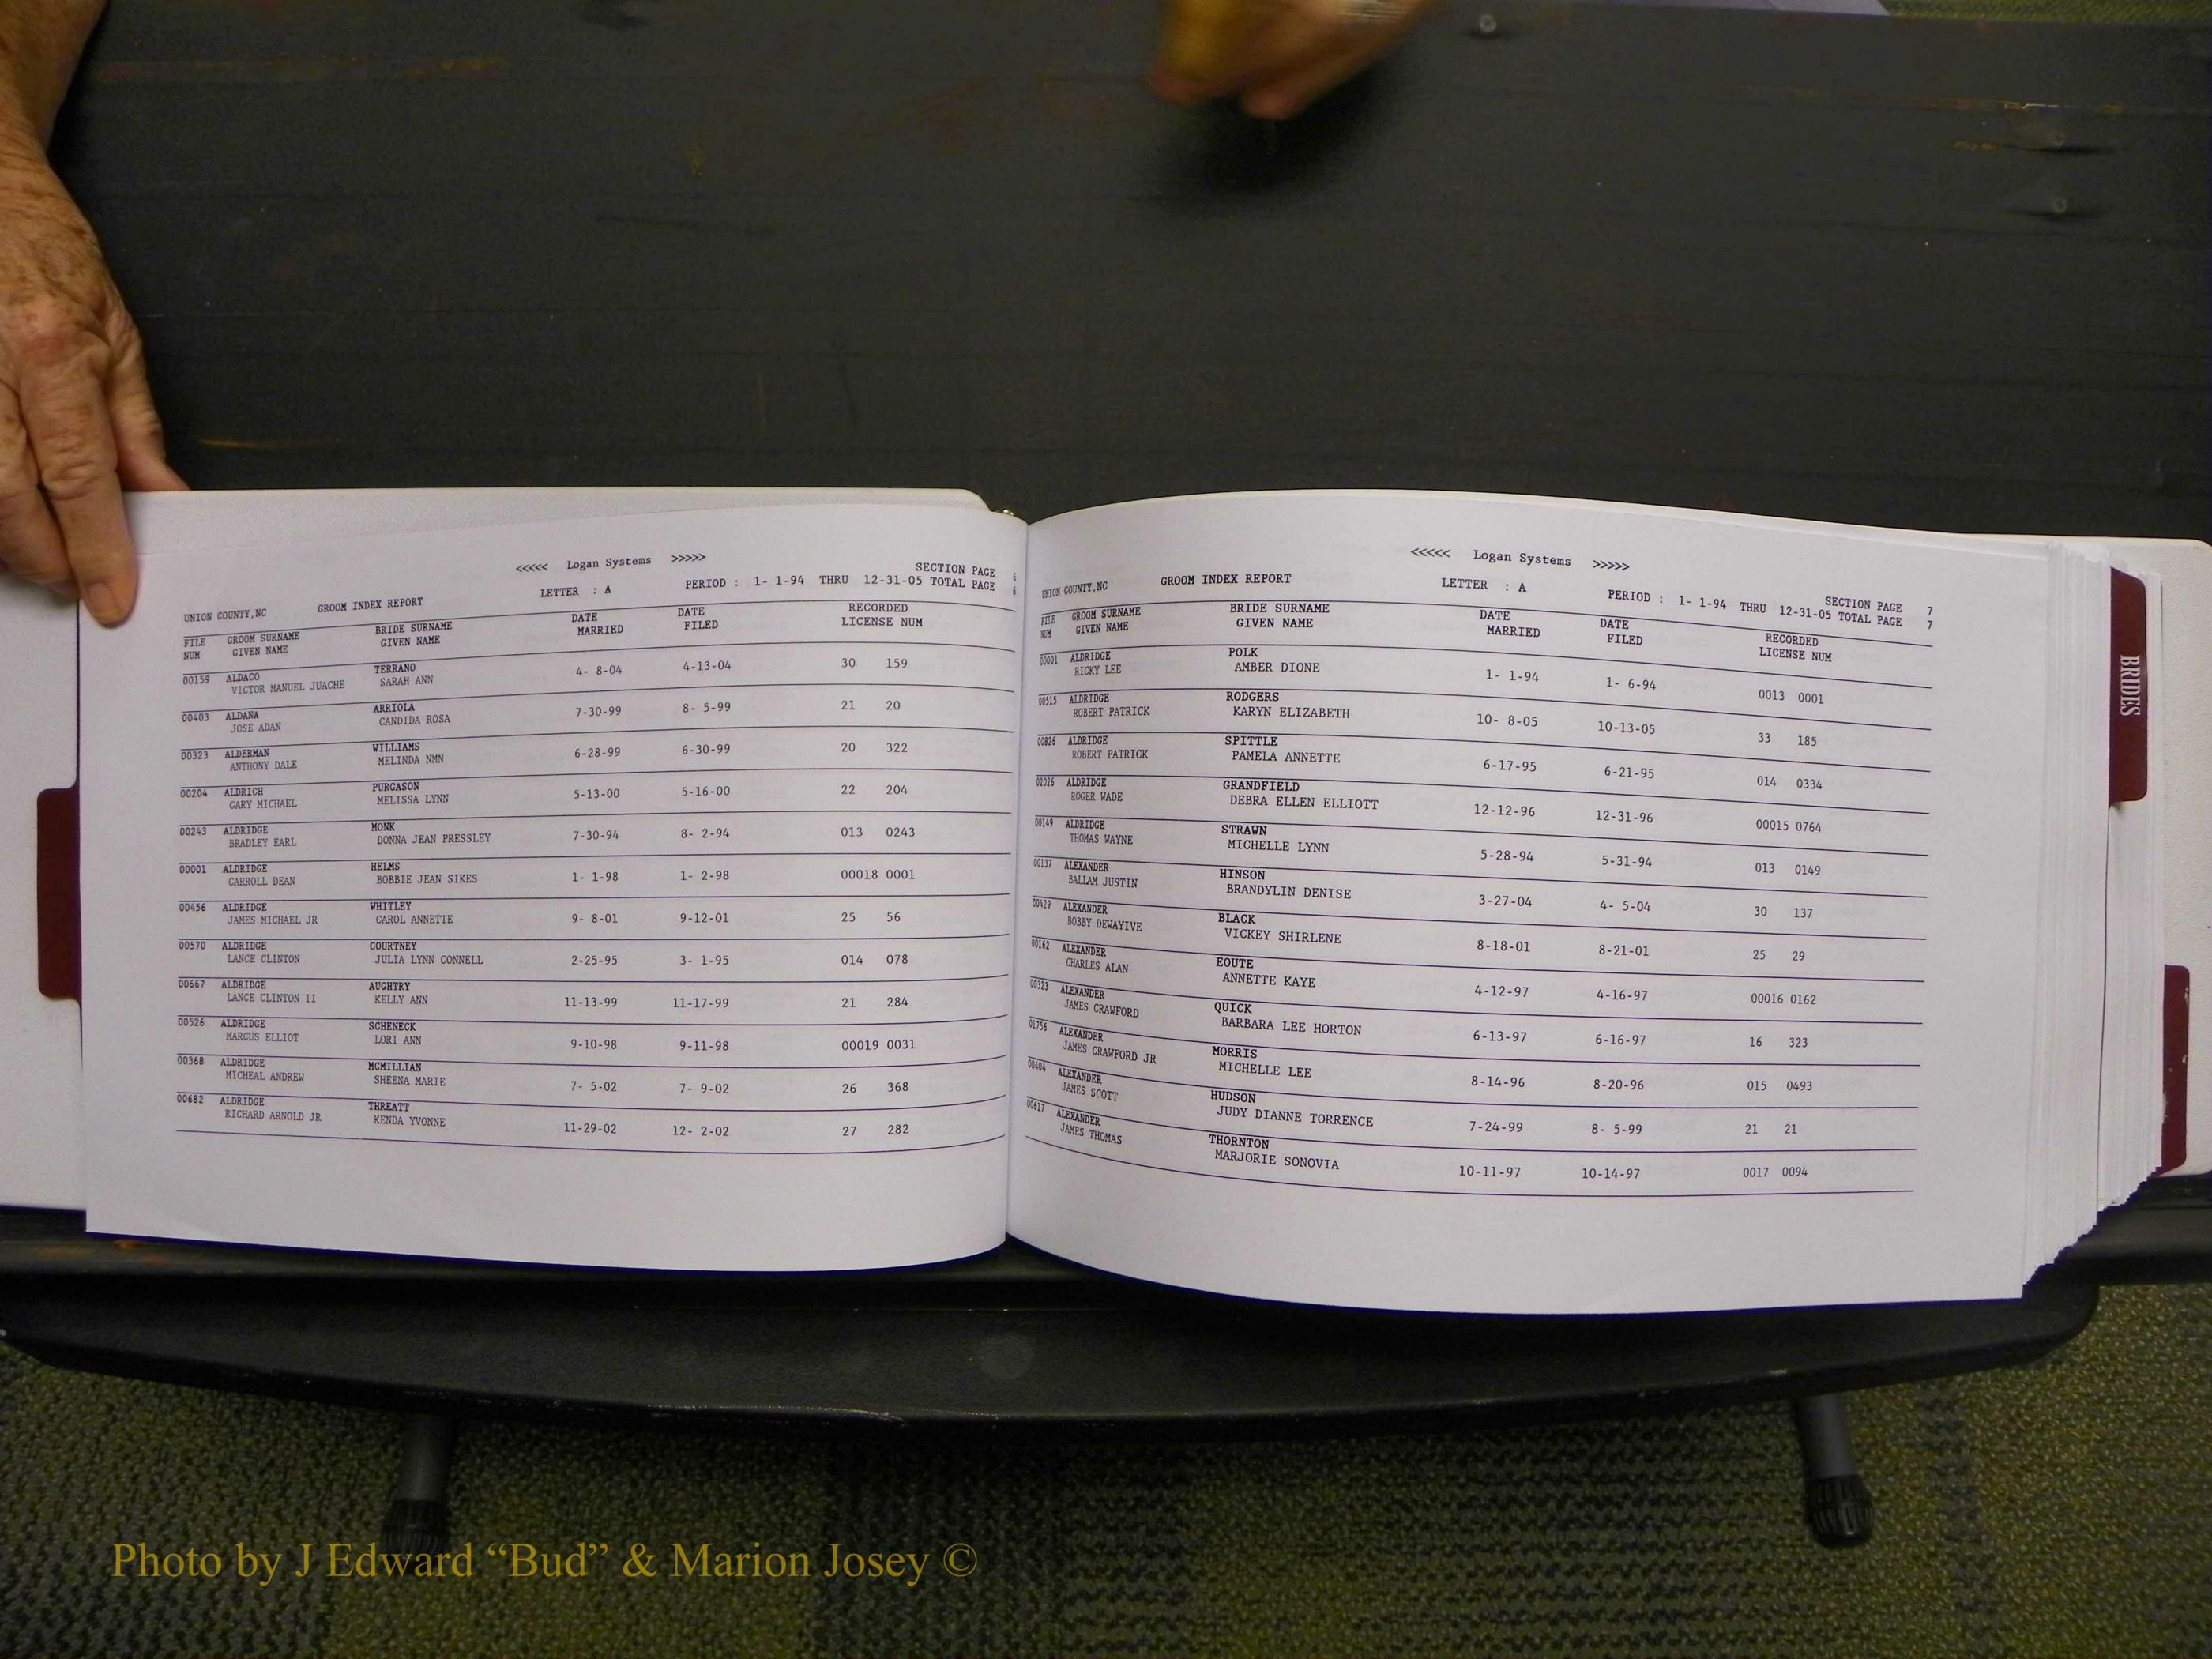 <<<<< Logan Systems >>>>>
SECTION PAGE 6
UNION COUNTY,NC GROOM INDEX REPORT LETTER : A PERIOD : 1- 1-94 THRU 12-31-05 TOTAL PAGE 6
FILE GROOM SURNAME BRIDE SURNAME DATE DATE RECORDED
NUM GIVEN NAME GIVEN NAME MARRIED FILED LICENSE NUM
00159 ALDACO TERRANO 4- 8-04 4-13-04 30 159
VICTOR MANUEL JUACHE SARAH ANN
00403 ALDANA ARRIOLA 7-30-99 8- 5-99 21 20
JOSE ADAN CANDIDA ROSA
00323 ALDERMAN WILLIAMS 6-28-99 6-30-99 20 322
ANTHONY DALE MELINDA NMN
00204 ALDRICH PURGASON 5-13-00 5-16-00 22 204
GARY MICHAEL MELISSA LYNN
00243 ALDRIDGE MONK 7-30-94 8- 2-94 013 0243
BRADLEY EARL DONNA JEAN PRESSLEY
00001 ALDRIDGE HELMS 1- 1-98 1- 2-98 00018 0001
CARROLL DEAN BOBBIE JEAN SIKES
00456 ALDRIDGE WHITLEY 9- 8-01 9-12-01 25 56
JAMES MICHAEL JR CAROL ANNETTE
00570 ALDRIDGE COURTNEY 2-25-95 3- 1-95 014 078
LANCE CLINTON JULIA LYNN CONNELL
00667 ALDRIDGE AUGHTRY 11-13-99 11-17-99 21 284
LANCE CLINTON II KELLY ANN
00526 ALDRIDGE SCHENECK 9-10-98 9-11-98 00019 0031
MARCUS ELLIOT LORI ANN
00368 ALDRIDGE MCMILLIAN 7- 5-02 7- 9-02 26 368
MICHEAL ANDREW SHEENA MARIE
00682 ALDRIDGE THREATT 11-29-02 12- 2-02 27 282
RICHARD ARNOLD JR KENDA YVONNE
<<<<< Logan Systems >>>>>
SECTION PAGE 7
UNION COUNTY,NC GROOM INDEX REPORT LETTER : A PERIOD : 1- 1-94 THRU 12-31-05 TOTAL PAGE 7
FILE GROOM SURNAME BRIDE SURNAME DATE DATE RECORDED
NUM GIVEN NAME GIVEN NAME MARRIED FILED LICENSE NUM
00001 ALDRIDGE POLK 1- 1-94 1- 6-94 0013 0001
RICKY LEE AMBER DIONE
00515 ALDRIDGE RODGERS 10- 8-05 10-13-05 33 185
ROBERT PATRICK KARYN ELIZABETH
00826 ALDRIDGE SPITTLE 6-17-95 6-21-95 014 0334
ROBERT PATRICK PAMELA ANNETTE
02026 ALDRIDGE GRANDFIELD 12-12-96 12-31-96 00015 0764
ROGER WADE DEBRA ELLEN ELLIOTT
00149 ALDRIDGE STRAWN 5-28-94 5-31-94 013 0149
THOMAS WAYNE MICHELLE LYNN
00137 ALEXANDER HINSON 3-27-04 4- 5-04 30 137
BALLAM JUSTIN BRANDYLIN DENISE
00429 ALEXANDER BLACK 8-18-01 8-21-01 25 29
BOBBY DEWAYIVE VICKEY SHIRLENE
00162 ALEXANDER EOUTE 4-12-97 4-16-97 00016 0162
CHARLES ALAN ANNETTE KAYE
00323 ALEXANDER QUICK 6-13-97 6-16-97 16 323
JAMES CRAWFORD BARBARA LEE HORTON
01756 ALEXANDER MORRIS 8-14-96 8-20-96 015 0493
JAMES CRAWFORD JR MICHELLE LEE
00404 ALEXANDER HUDSON 7-24-99 8- 5-99 21 21
JAMES SCOTT JUDY DIANNE TORRENCE
00617 ALEXANDER THORNTON 10-11-97 10-14-97 0017 0094
JAMES THOMAS MARJORIE SONOVIA
BRIDES
Photo by J Edward “Bud” & Marion Josey ©